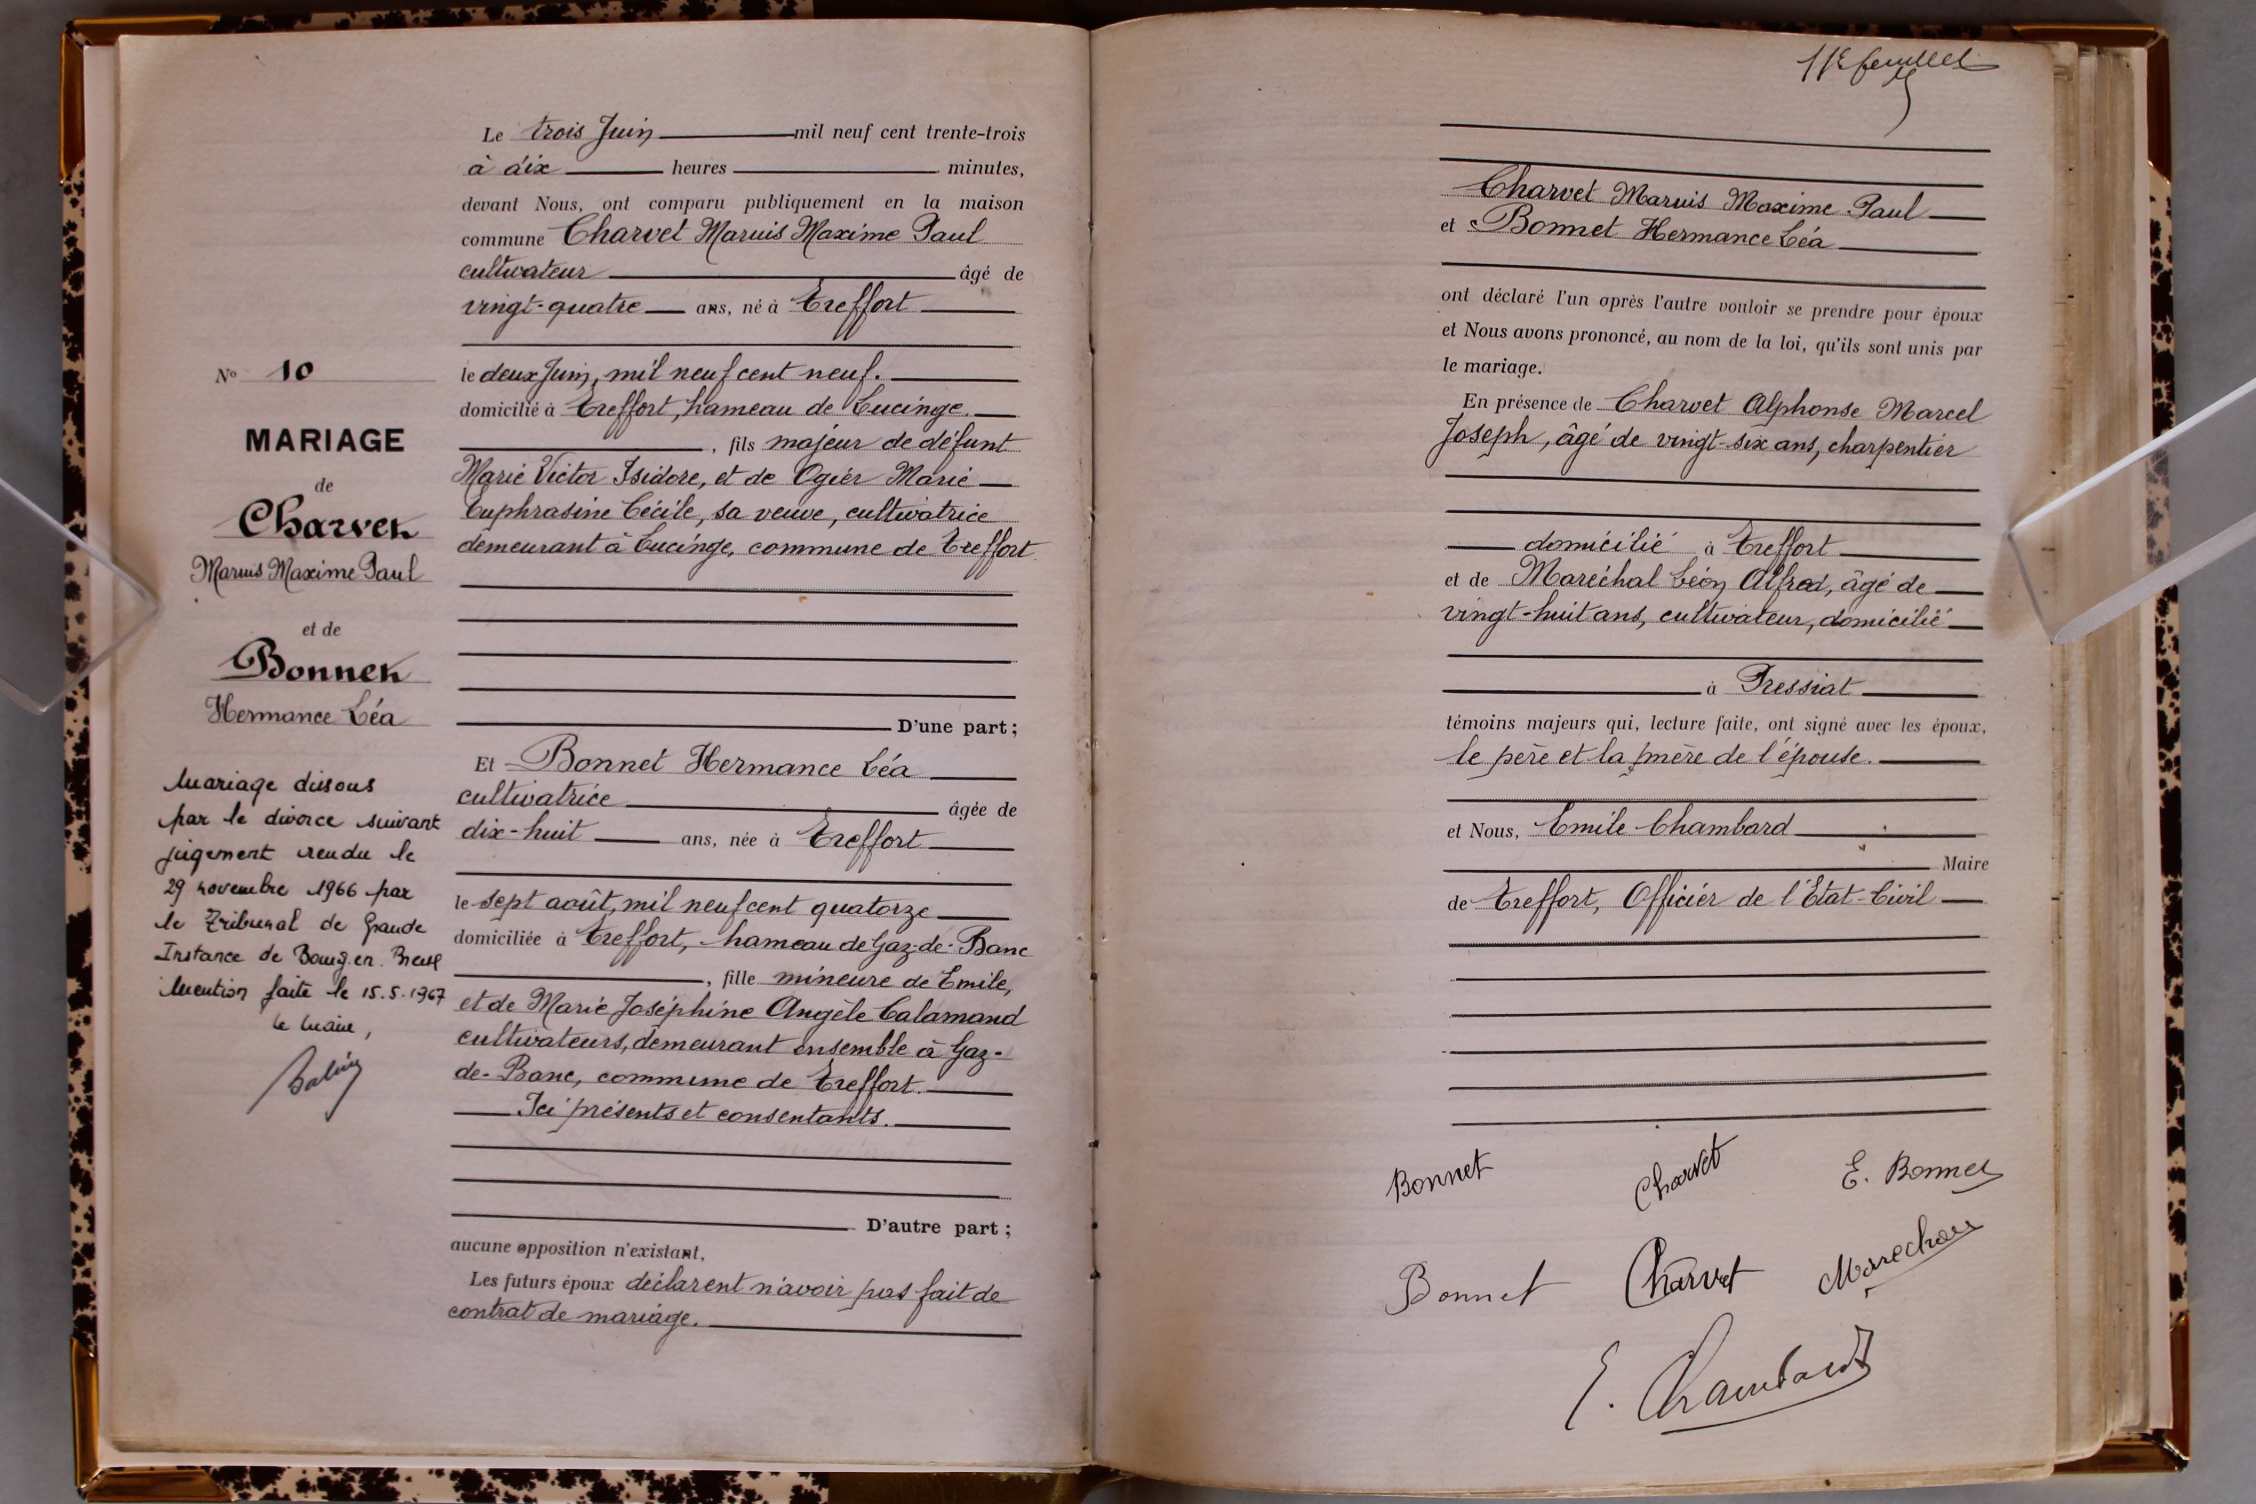 11e feuillet
Nº 10
MARIAGE
de
Charvet
Marius Maxime Paul
et de
Bonnet
Hermance Léa
Mariage dissous
par le divorce suivant
jugement rendu le
29 novembre 1966 par
le Tribunal de Grande
Instance de Bourg.en.Bresse
Mention faite le 15.5.1967
le Maire,
Le trois Juin mil neuf cent trente-trois
à dix heures minutes,
devant Nous, ont comparu publiquement en la maison
commune Charvet Marius Maxime Paul
cultivateur âgé de
vingt-quatre ans, né à Treffort
le deux Juin, mil neuf cent neuf.
domicilié à Treffort, hameau de Lucinge.
, fils majeur de défunt
Marie Victor Isidore, et de Ogier Marie
Euphrasine Cécile, sa veuve, cultivatrice
demeurant à Lucinge, commune de Treffort
D'une part ;
Et Bonnet Hermance Léa
cultivatrice âgée de
dix-huit ans, née à Treffort
le sept août, mil neuf cent quatorze
domiciliée à Treffort, hameau de Gaz-de-Banc
, fille mineure de Emile,
et de Marie Joséphine Angèle Calamand
cultivateurs, demeurant ensemble à Gaz-
de-Banc, commune de Treffort.
Ici présents et consentants.
D'autre part ;
aucune opposition n'existant,
Les futurs époux déclarent n'avoir pas fait de
contrat de mariage.
Charvet Marius Maxime Paul
et Bonnet Hermance Léa
ont déclaré l'un après l'autre vouloir se prendre pour époux
et Nous avons prononcé, au nom de la loi, qu'ils sont unis par
le mariage.
En présence de Charvet Alphonse Marcel
Joseph, âgé de vingt-six ans, charpentier
domicilié à Treffort
et de Maréchal Léon Alfred, âgé de
vingt-huit ans, cultivateur, domicilié
à Pressiat
témoins majeurs qui, lecture faite, ont signé avec les époux,
le père et la mère de l'épouse.
et Nous, Emile Chambard
Maire
de Treffort, Officier de l'Etat-Civil
Bonnet Charvet E. Bonnet
Bonnet Charvet Marechal
E. Chambard